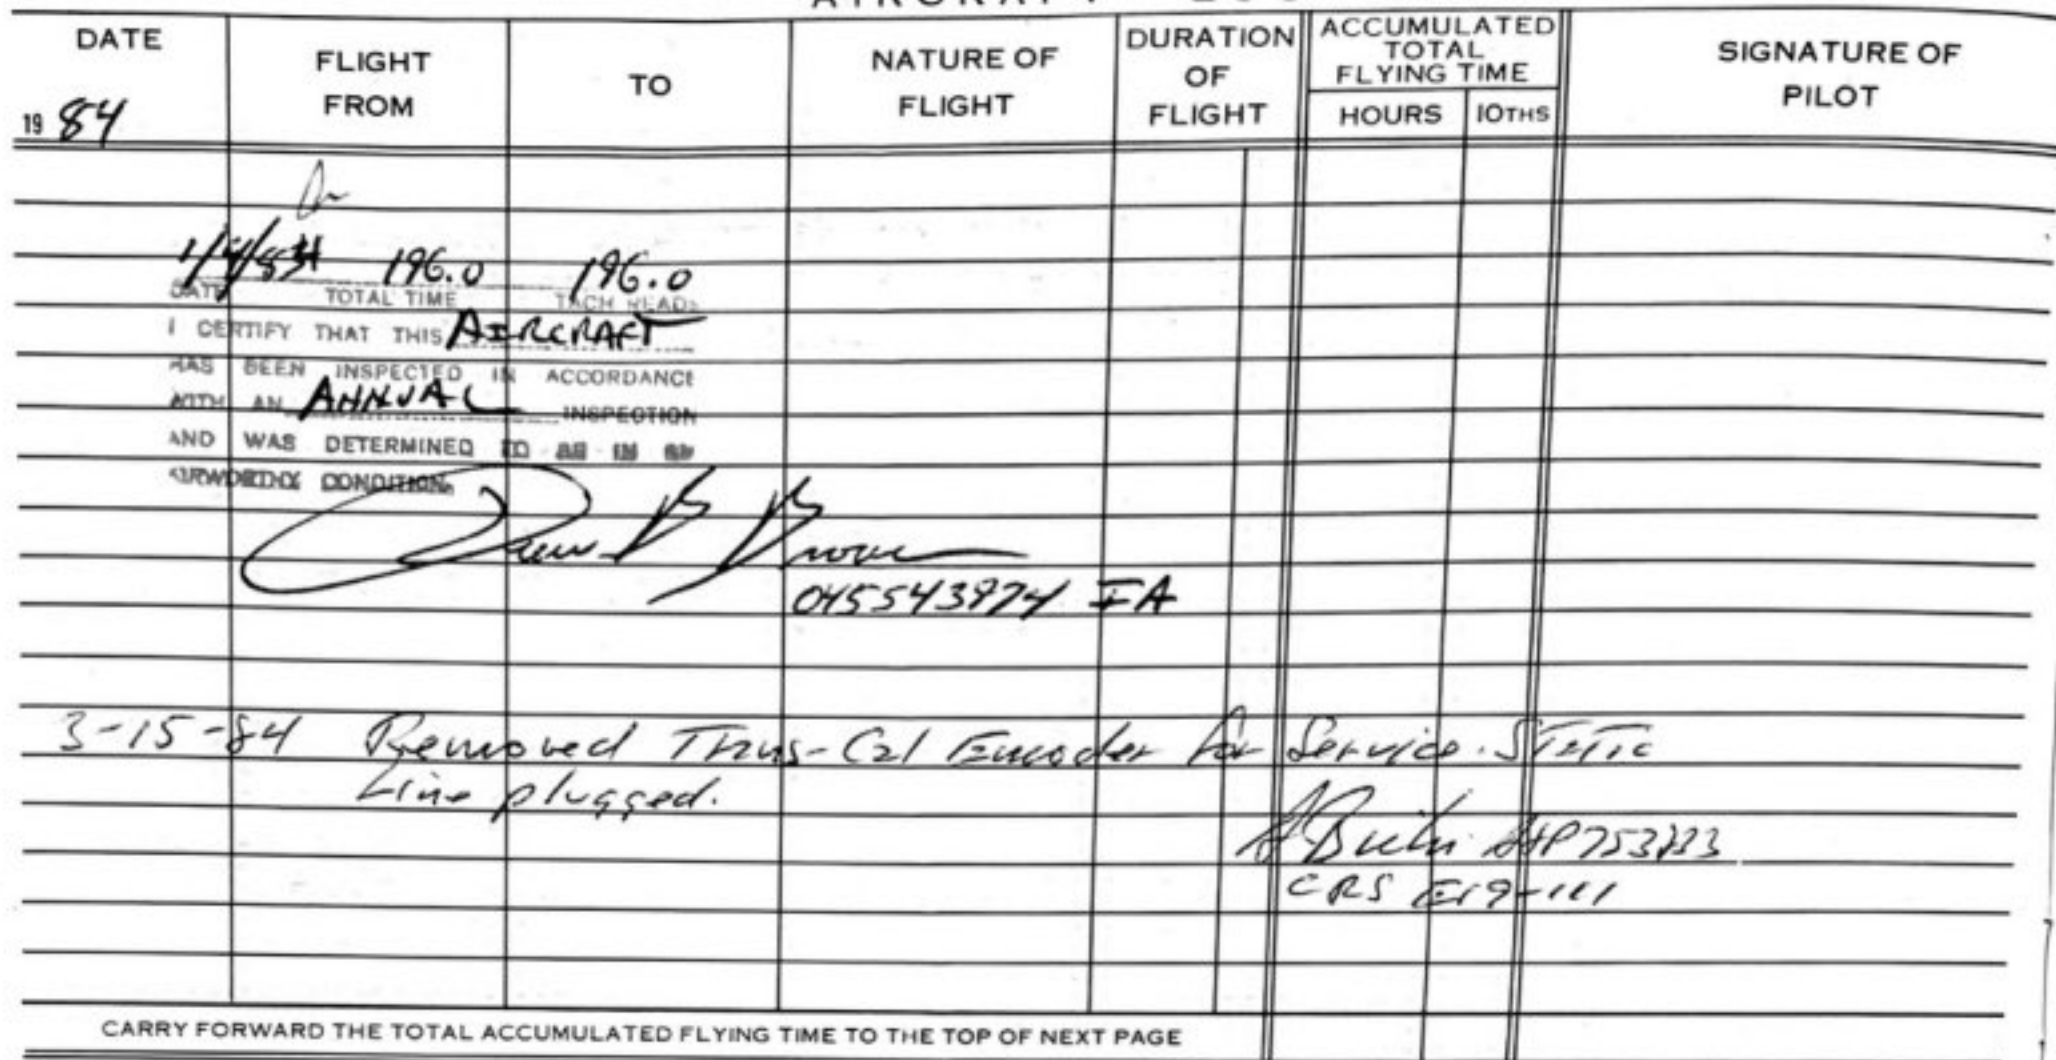 AIRCRAFT LOG
DATE
FLIGHT FROM
TO
NATURE OF FLIGHT
DURATION OF FLIGHT
ACCUMULATED TOTAL FLYING TIME
HOURS
10THS
SIGNATURE OF PILOT
19 84
196.0 196.0
DATE TOTAL TIME TACH READ
I CERTIFY THAT THIS AIRCRAFT
HAS BEEN INSPECTED IN ACCORDANCE
WITH AN ANNUAL INSPECTION
AND WAS DETERMINED TO BE IN AN
AIRWORTHY CONDITION.
IA
3-15-84 Removed Trans-Cal Encoder for Service. Static
Line plugged.
CRS E19-111
CARRY FORWARD THE TOTAL ACCUMULATED FLYING TIME TO THE TOP OF NEXT PAGE